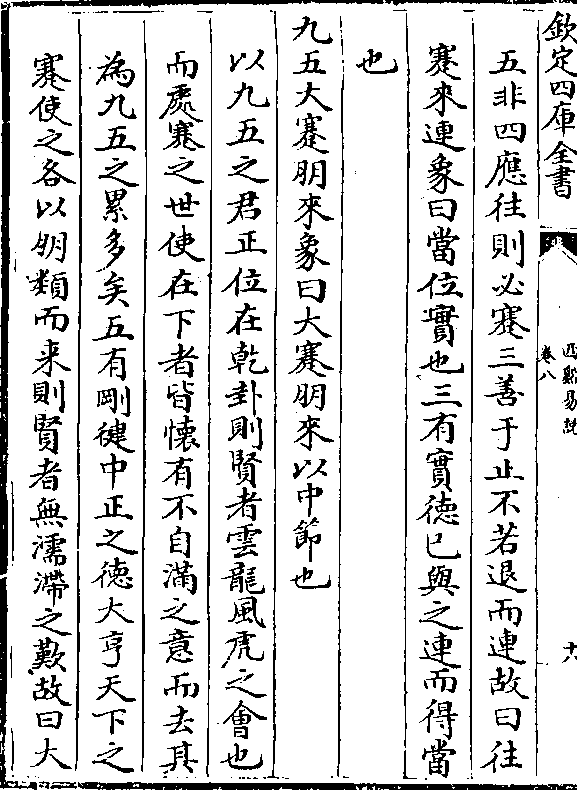 欽定四庫全書
西谿易說
卷八
十八
五非四應往則必蹇三善于止不若退而連故曰往
蹇來連象曰當位實也三有實德已與之連而得當
也
九五大蹇朋來象曰大蹇朋來以中節也
以九五之君正位在乾卦則賢者雲龍風虎之會也
而處蹇之世使在下者皆懷有不自滿之意而去其
為九五之累多矣五有剛健中正之德大亨天下之
蹇使之各以朋類而来則賢者無濡滯之歎故曰大